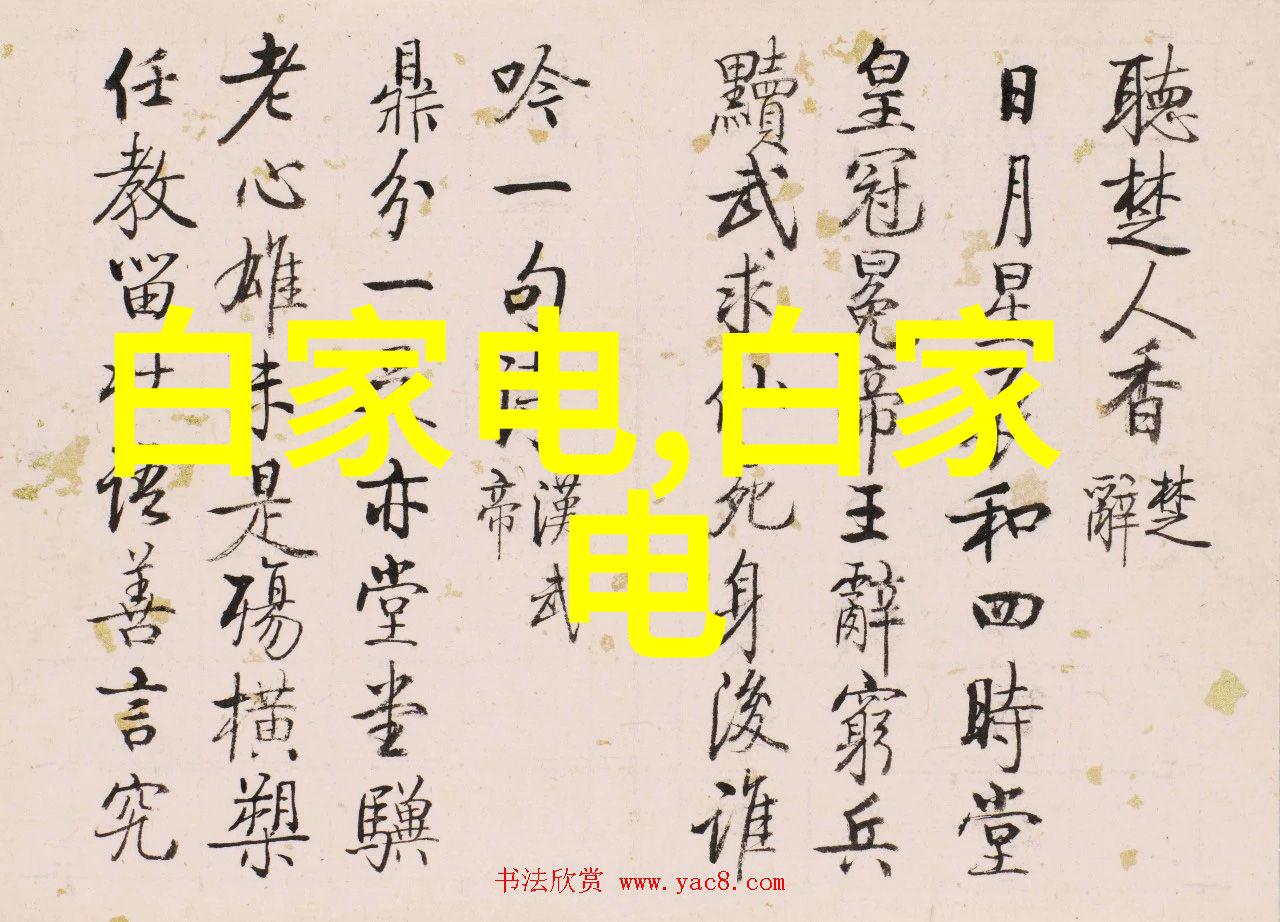 聽楚人香 楚辭
日月星辰和四時堂
皇冠冕帝王辭窮兵
黷武求仙死身後誰
吟一句詩 漢武帝
鼎分一足亦堂堂驥
老心雄未是殤橫槊
任教留壯語善言究
白家电,白家
电
书法欣赏 www.yac8.com